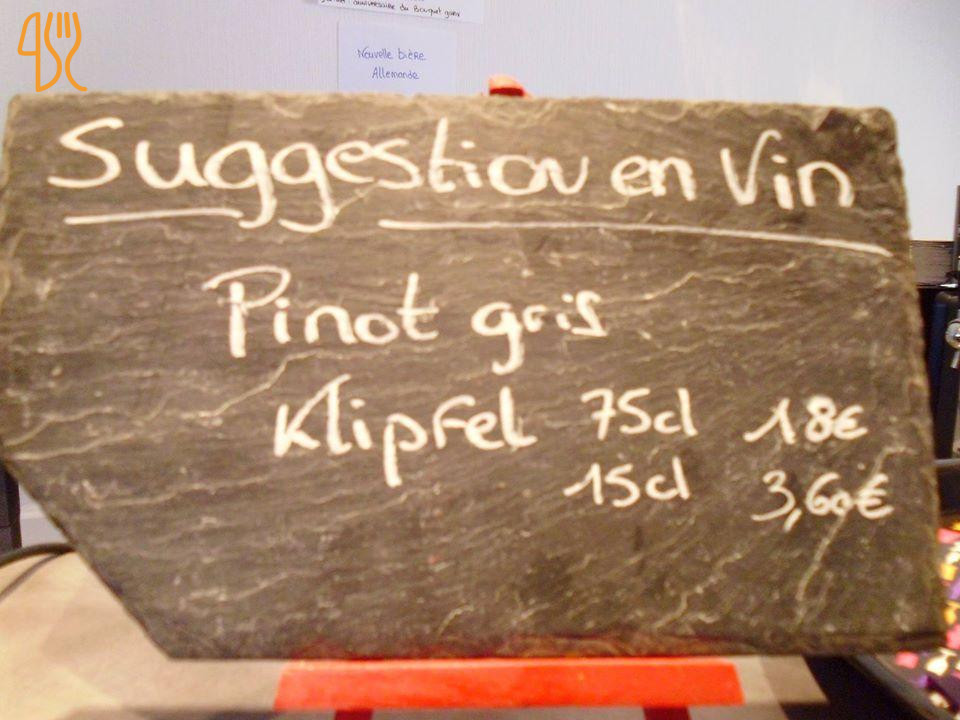 anniversaire du Bouquet garni
Nouvelle bière
Allemande
Suggestion en Vin
Pinot gris
Klipfel 75cl 18€
15cl 3,60€